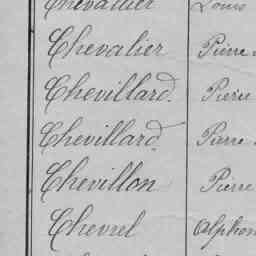 Chevallier Louis
Chevalier Pierre
Chevillard. Pierre
Chevillard. Pierre
Chevillon Pierre
Chevrel Alphon